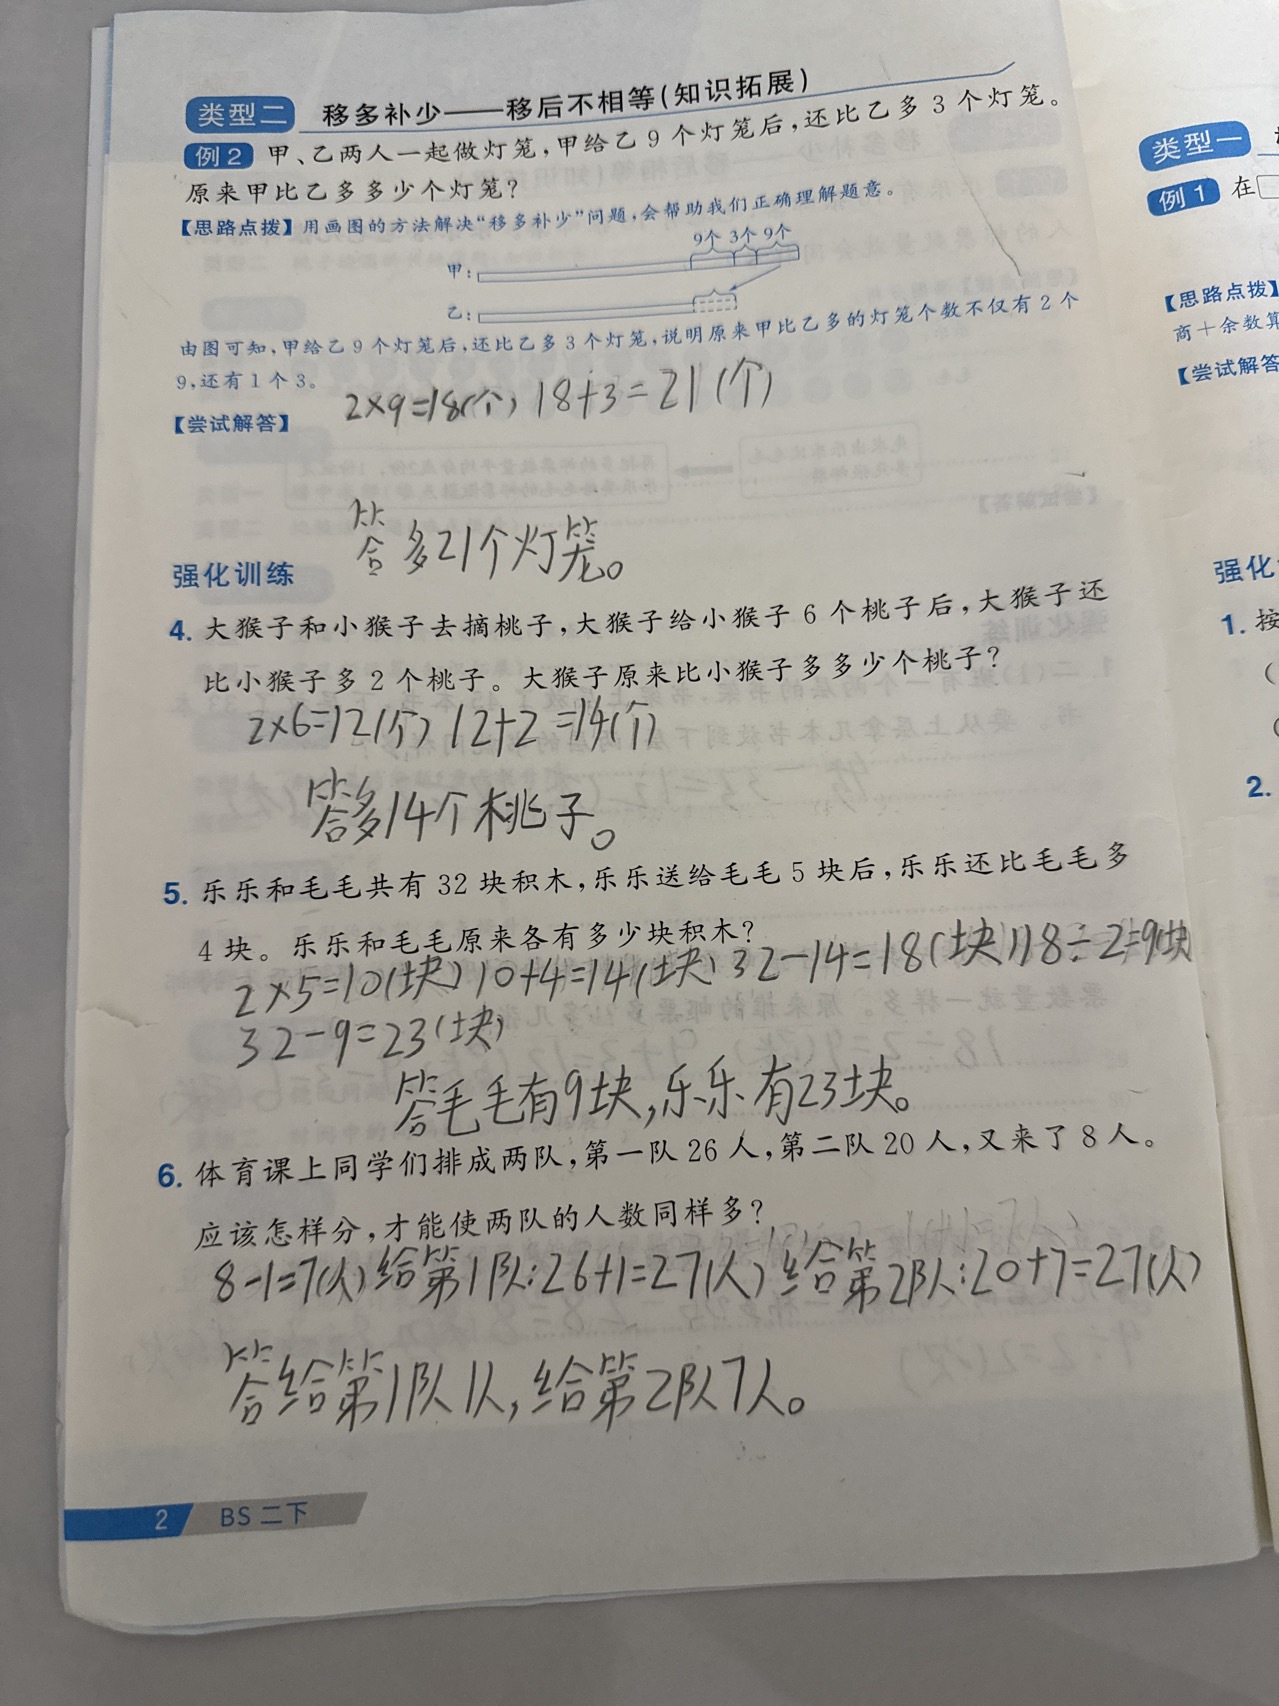 类型二 移多补少——移后不相等(知识拓展)
例2 甲、乙两人一起做灯笼,甲给乙9个灯笼后,还比乙多3个灯笼。
原来甲比乙多多少个灯笼?
【思路点拨】用画图的方法解决“移多补少”问题,会帮助我们正确理解题意。
9个 3个 9个
甲:
乙:
由图可知,甲给乙9个灯笼后,还比乙多3个灯笼,说明原来甲比乙多的灯笼个数不仅有2个
9,还有1个3。
【尝试解答】 2×9=18(个) 18+3=21(个)
答多21个灯笼。
强化训练
4. 大猴子和小猴子去摘桃子,大猴子给小猴子6个桃子后,大猴子还
比小猴子多2个桃子。大猴子原来比小猴子多多少个桃子?
2×6=12(个) 12+2=14(个)
答多14个桃子。
5. 乐乐和毛毛共有32块积木,乐乐送给毛毛5块后,乐乐还比毛毛多
4块。乐乐和毛毛原来各有多少块积木?
2×5=10(块) 10+4=14(块) 32-14=18(块) 18÷2=9(块
32-9=23(块)
答毛毛有9块,乐乐有23块。
6. 体育课上同学们排成两队,第一队26人,第二队20人,又来了8人。
应该怎样分,才能使两队的人数同样多?
8-1=7(人) 给第1队:26+1=27(人) 给第2队:20+7=27(人)
答给第1队1人,给第2队7人。
2 BS 二下
类型一
例1 在
【思路点拨】
商+余数
【尝试解答
强化
1. 按
(
2.